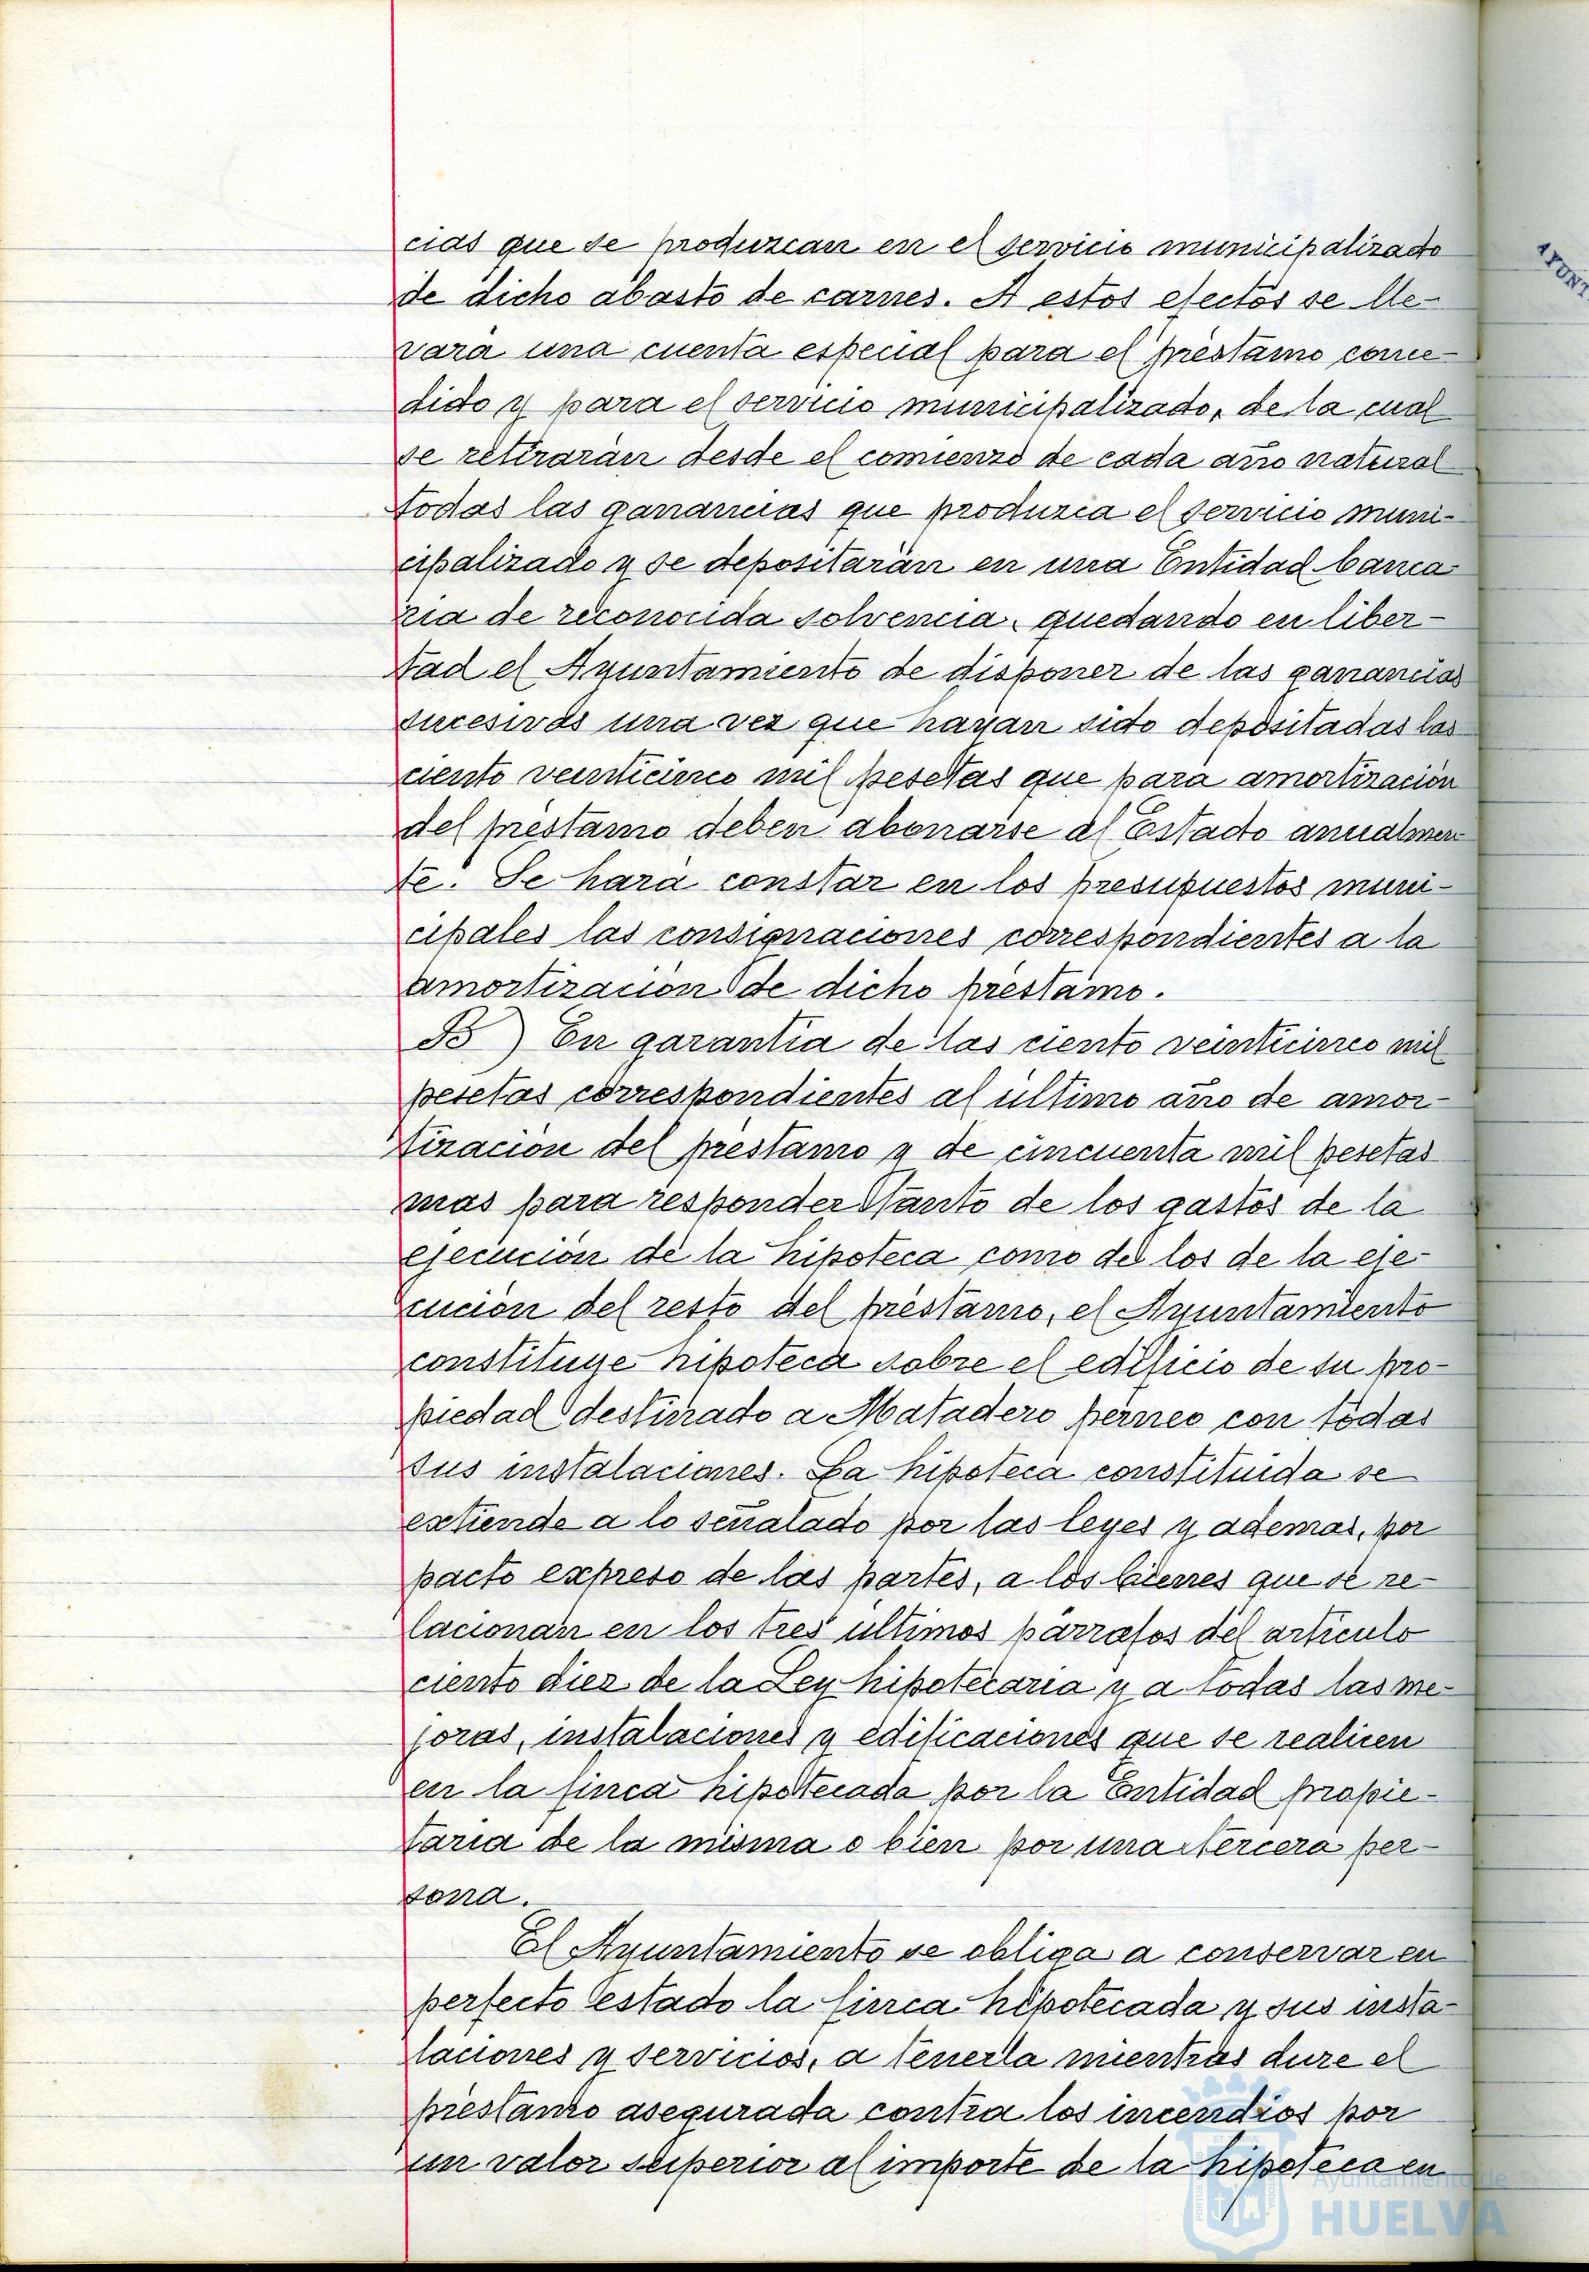 cias que se produzcan en el servicio municipalizado
de dicho abasto de carnes. A estos efectos se lle-
vará una cuenta especial para el préstamo conce-
dido y para el servicio municipalizado, de la cual
se retirarán desde el comienzo de cada año natural
todas las ganancias que produzca el servicio muni-
cipalizado y se depositarán en una Entidad banca
ria de reconocida solvencia, quedando en liber-
tad el Ayuntamiento de disponer de las ganancias
sucesivas una vez que hayan sido depositadas las
ciento veinticinco mil pesetas que para amortización
del préstamo deben abonarse al Estado anualmen
te. Se hará constar en los presupuestos muni-
cipales las consignaciones correspondientes a la
amortización de dicho préstamo.
B) En garantía de las ciento veinticinco mil
pesetas correspondientes al último año de amor-
tización del préstamo y de cincuenta mil pesetas
mas para responder tanto de los gastos de la
ejecución de la hipoteca como de los de la eje-
cución del resto del préstamo, el Ayuntamiento
constituye hipoteca sobre el edificio de su pro-
piedad destinado a Matadero perneo con todas
sus instalaciones. La hipoteca constituida se
extiende a lo señalado por las leyes y ademas, por
pacto expreso de las partes, a los bienes que se re-
lacionan en los tres últimos párrafos del artículo
ciento diez de la Ley hipotecaria y a todas las me-
joras, instalaciones y edificaciones que se realicen
en la finca hipotecada por la Entidad propie-
taria de la misma o bien por una tercera per-
sona.
El Ayuntamiento se obliga a conservar en
perfecto estado la finca hipotecada y sus insta-
laciones y servicios, a tenerla mientras dure el
préstamo asegurada contra los incendios por
un valor superior al importe de la hipoteca en
AYUNT
Ayuntamiento de
HUELVA